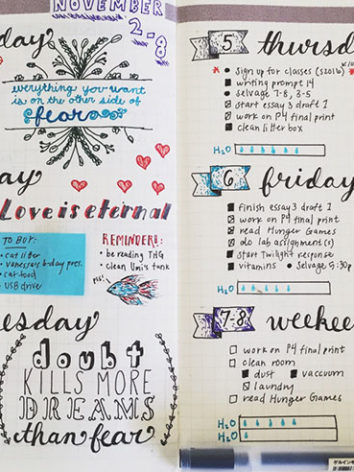 NOVEMBER
2-8
day
everything you want
is on the other side of
fear
day
Love is eternal
TO BUY:
• cat litter
• Vanessa's b-day pres.
• cat food
• USB drive
REMINDER!:
- be reading THG
- clean Umi's tank
uesday
doubt
KILLS MORE
DREAMS
than fear
5 thursd
sign up for classes (S2016)
writing prompt 14
selvage 7-8, 3-5
start essay 3 draft 1
work on P4 final print
clean litter box
H2O
6 friday
finish essay 3 draft 1
work on P4 final print
read Hunger Games
do lab assignment(s)
start Twilight response
vitamins • Selvage 5:30p
H2O
7-8 weeke
work on P4 final print
clean room
dust vacuum
laundry
read Hunger Games
H2O
H2O